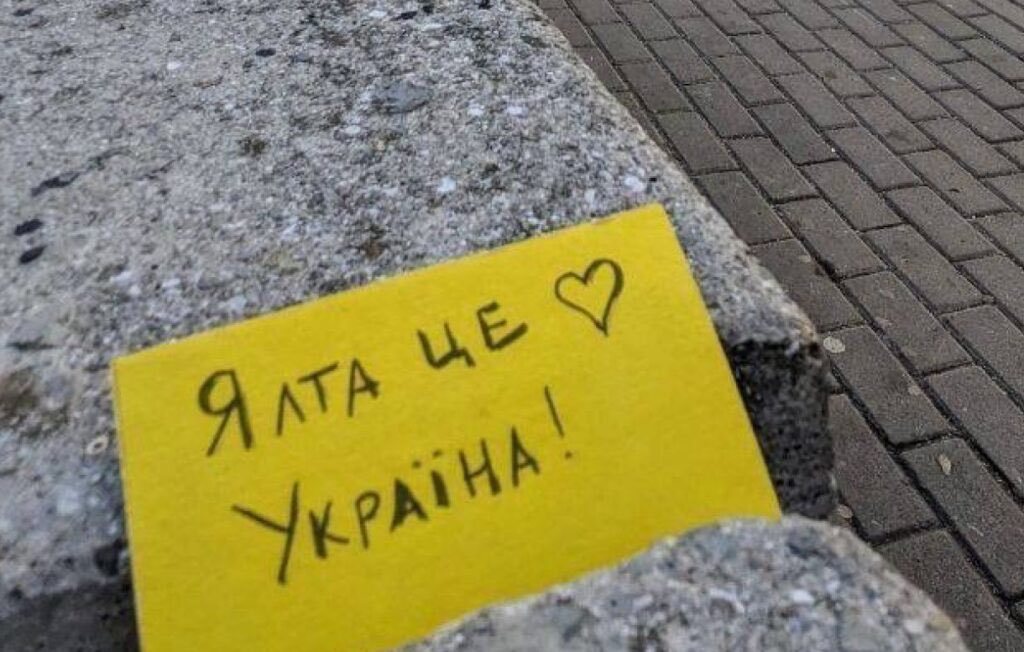 Ялта це ♡
Україна!